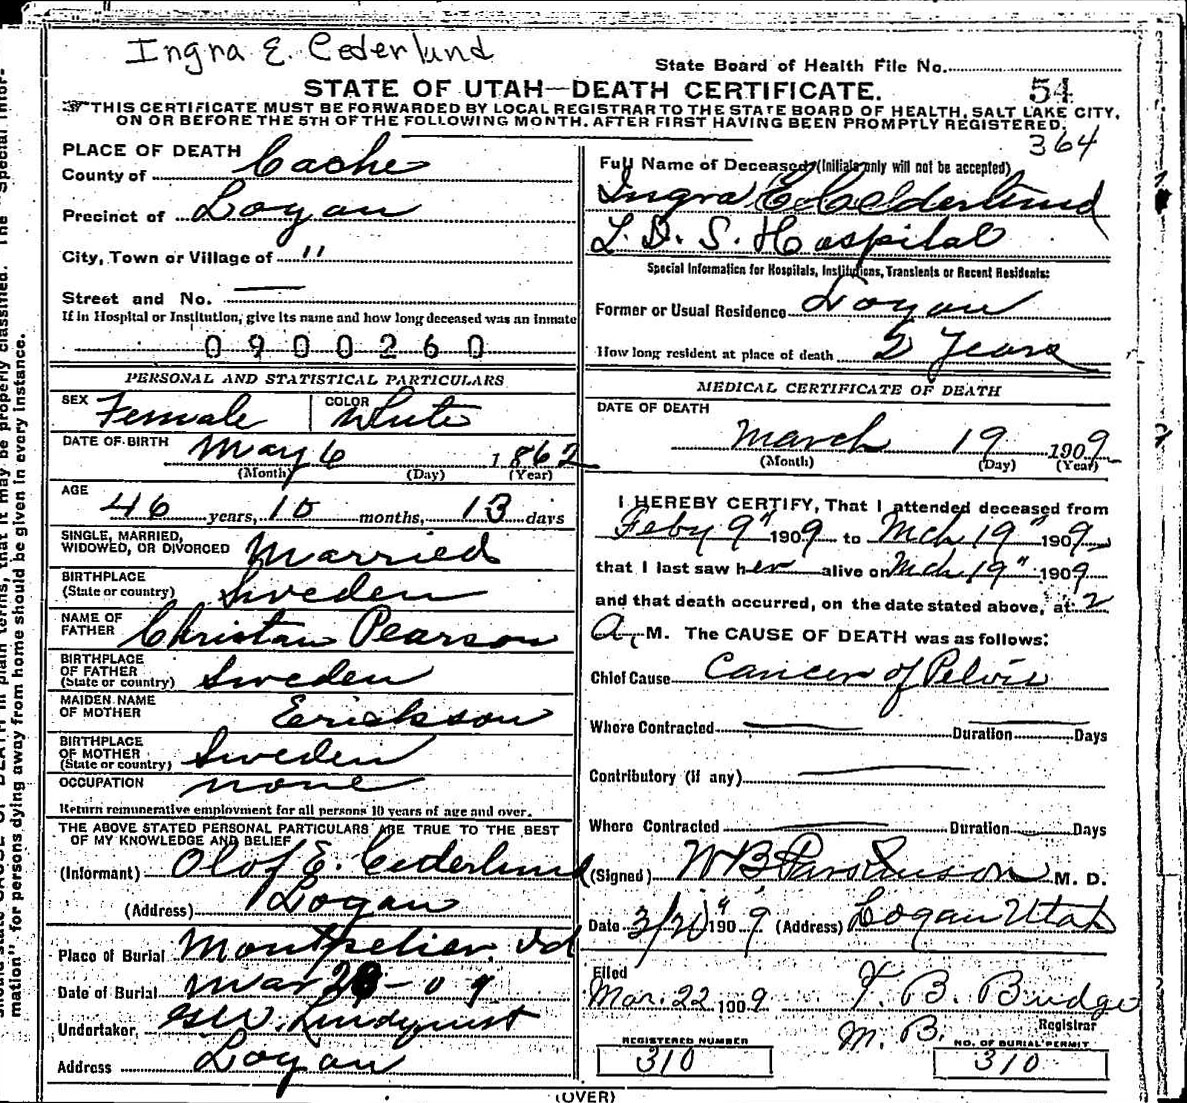 Ingra E. Cederlund
State Board of Health File No.
STATE OF UTAH—DEATH CERTIFICATE.
54
THIS CERTIFICATE MUST BE FORWARDED BY LOCAL REGISTRAR TO THE STATE BOARD OF HEALTH, SALT LAKE CITY,
ON OR BEFORE THE 5TH OF THE FOLLOWING MONTH. AFTER FIRST HAVING BEEN PROMPTLY REGISTERED.
364
PLACE OF DEATH
County of Cache
Precinct of Logan
City, Town or Village of "
Street and No. —
If in Hospital or Institution, give its name and how long deceased was an inmate
0900260
PERSONAL AND STATISTICAL PARTICULARS
SEX Female COLOR White
DATE OF BIRTH May 6 1862
(Month) (Day) (Year)
AGE
46 years, 10 months, 13 days
SINGLE, MARRIED,
WIDOWED, OR DIVORCED Married
BIRTHPLACE
(State or country) Sweden
NAME OF
FATHER Christan Pearson
BIRTHPLACE
OF FATHER
(State or country) Sweden
MAIDEN NAME
OF MOTHER Erickson
BIRTHPLACE
OF MOTHER
(State or country) Sweden
OCCUPATION none
Return remunerative employment for all persons 10 years of age and over.
THE ABOVE STATED PERSONAL PARTICULARS ARE TRUE TO THE BEST
OF MY KNOWLEDGE AND BELIEF
(Informant) Olof E. Cederlund
(Address) Logan
Place of Burial Montpelier, Id
Date of Burial Mar 23-09
Undertaker, Lindquist
Address Logan
Full Name of Deceased (Initials only will not be accepted)
Ingra C Cederlund
L. D. S. Hospital
Special Information for Hospitals, Institutions, Transients or Recent Residents:
Former or Usual Residence Logan
How long resident at place of death 2 Years
MEDICAL CERTIFICATE OF DEATH
DATE OF DEATH
March 19 1909
(Month) (Day) (Year)
I HEREBY CERTIFY, That I attended deceased from
Feby 9" 1909 to Mch 19" 1909
that I last saw her alive on Mch 19" 1909
and that death occurred, on the date stated above, at 2
A. M. The CAUSE OF DEATH was as follows:
Chief Cause Cancer of Pelvis
Where Contracted Duration Days
Contributory (if any)
Where Contracted Duration Days
(Signed) W B Parkinson M. D.
Date 3/20 1909 (Address) Logan Utah
Filed
Mar. 22 1909 T. B. Budge
M. B. Registrar
REGISTERED NUMBER
310
NO. OF BURIAL PERMIT
310
(OVER)
mation" for persons dying away from home should be given in every instance.